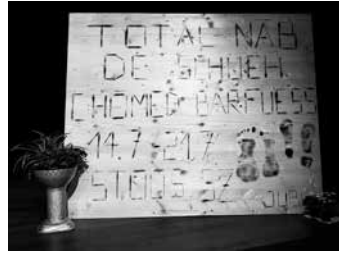 TOTAL NAB
DE SCHUEH
CHÖMED BARFUESS
14.7-21.7
STOOS SZ